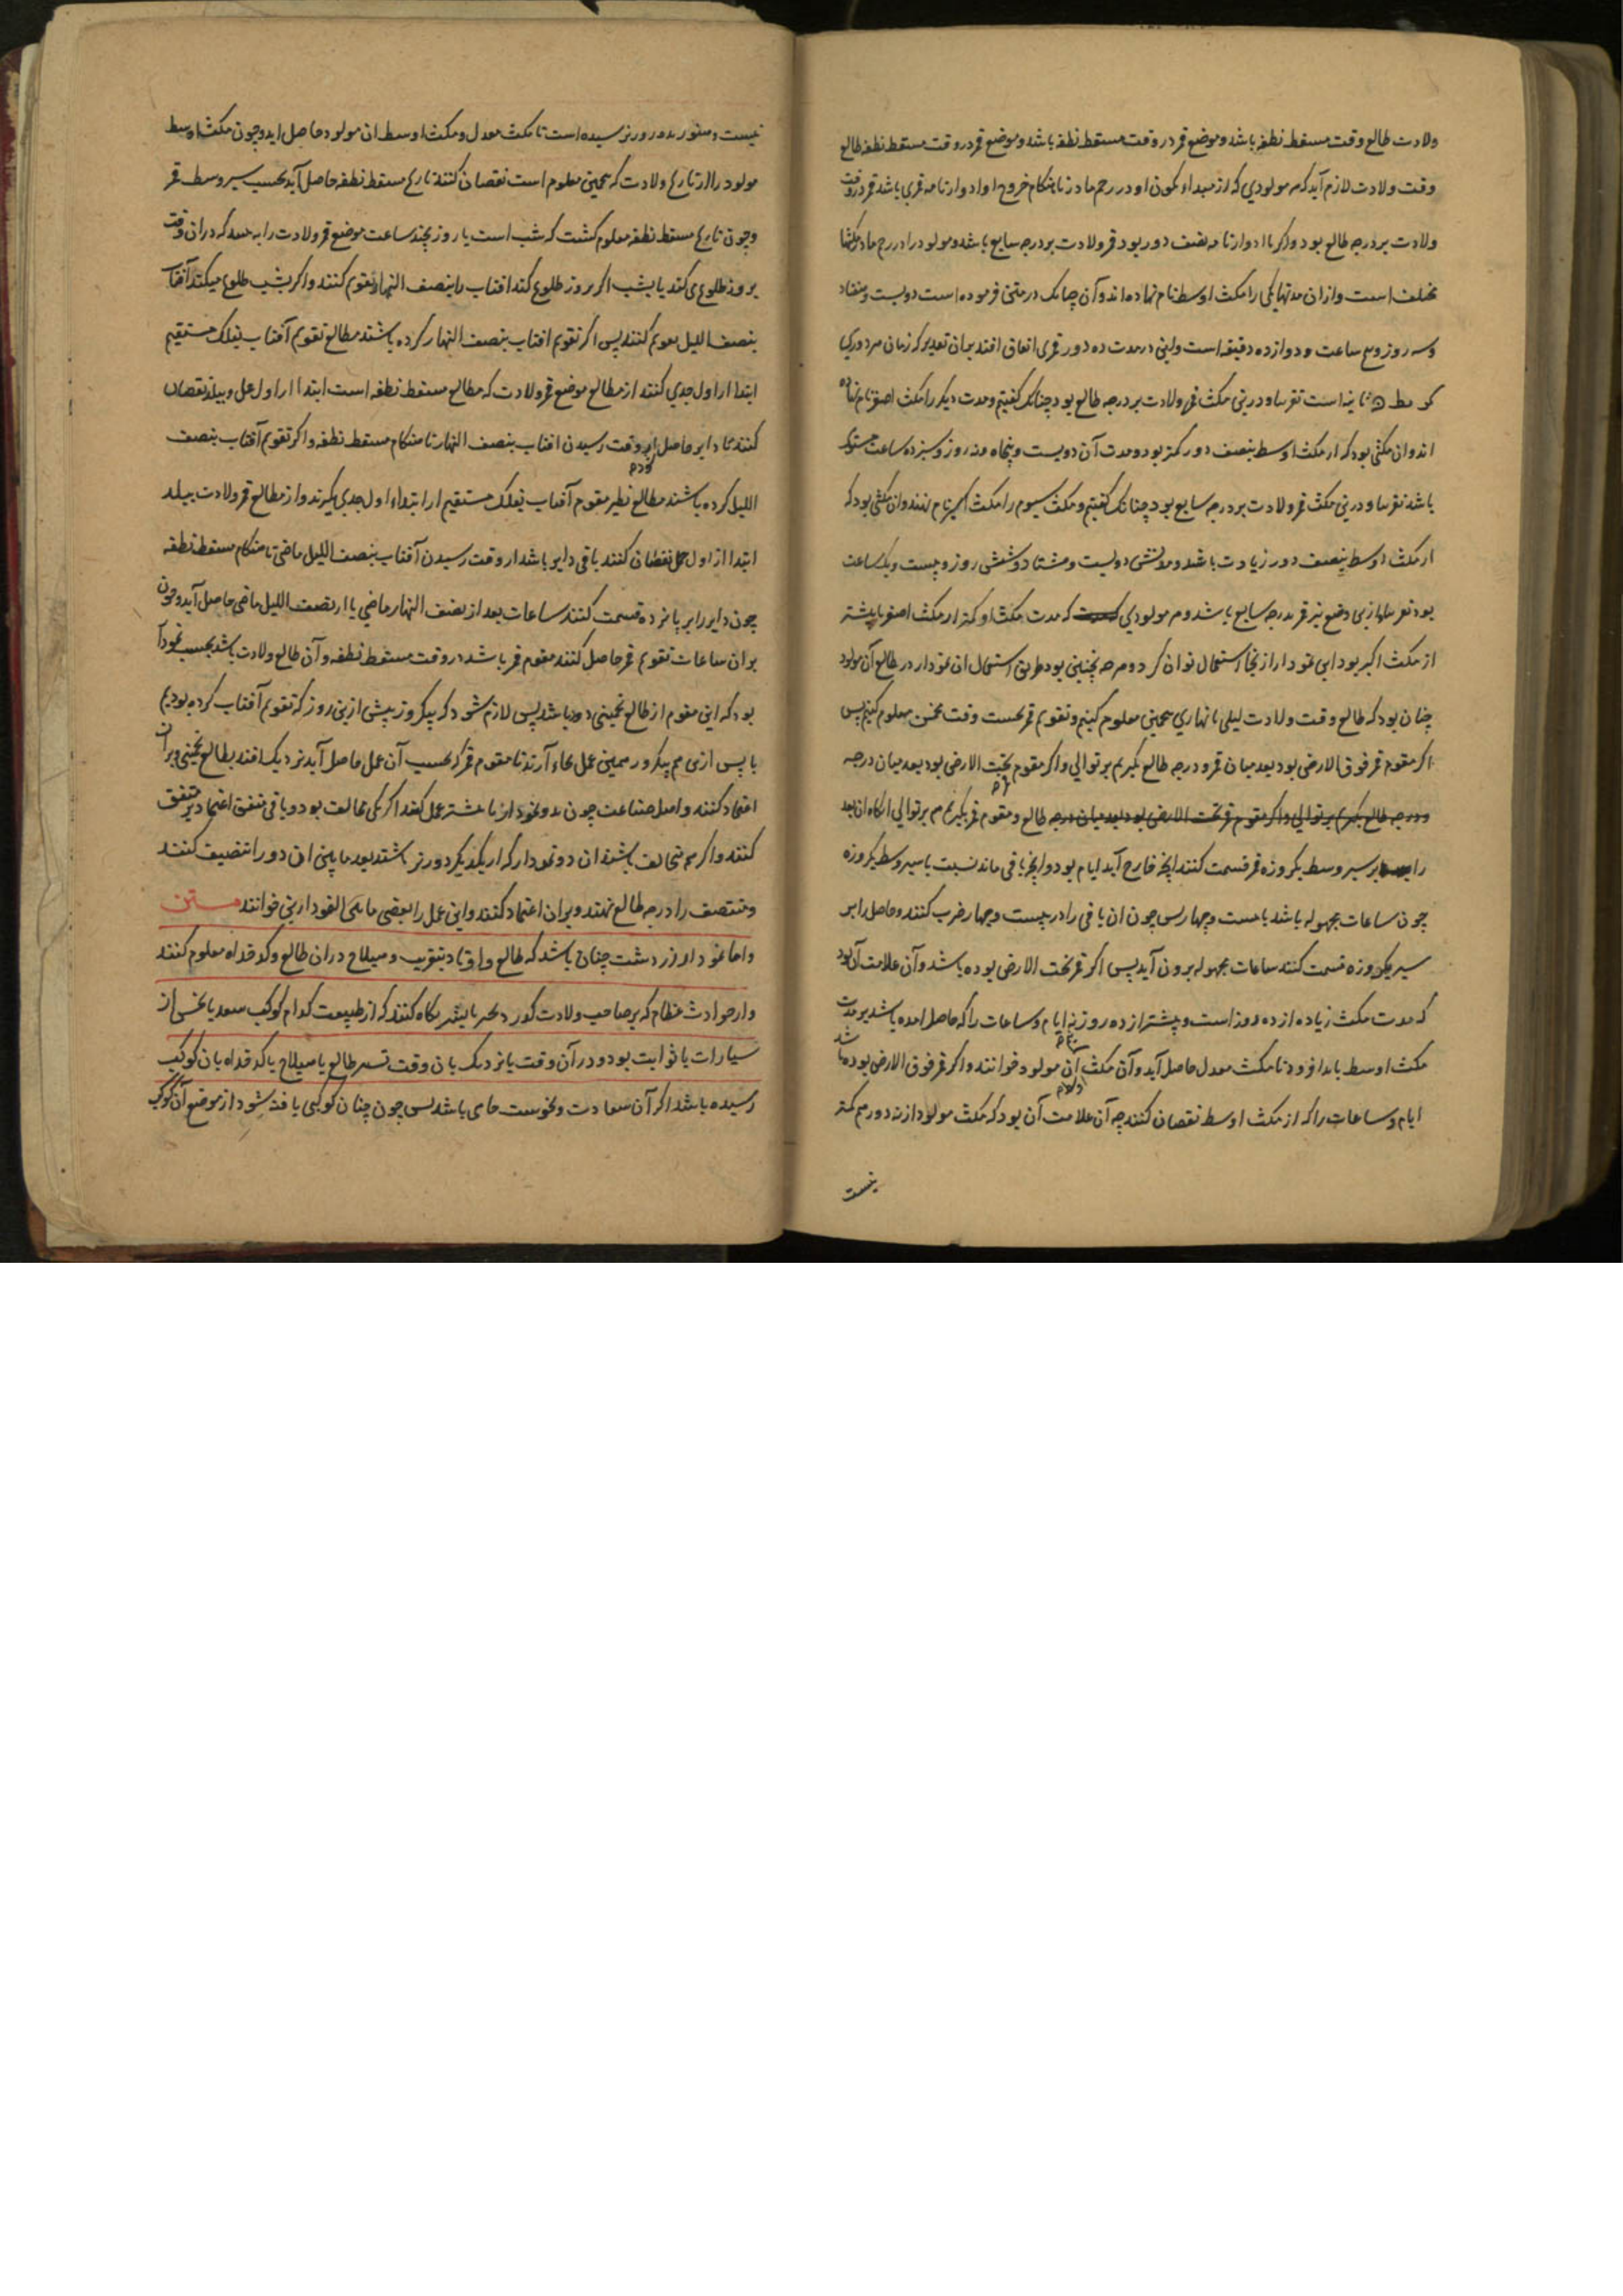 ولادت طالع وقت مسقط نطفه باشد و موضع قمر در وقت مسقط نطفه باشد و موضع قمر در وقت مسقط نطفه طالع
وقت ولادت لازم آید که هر مولودی که از مبداء کون او در رحم مادر تا هنگام خروج او ادوار تامه قمری باشد قمر در وقت
ولادت بر درجه طالع بود و اگر با ادوار تامه نصف دور بود قمر ولادت بر درجه سابع باشد و مولود را در رحم مادر مکثها
مختلف است و از ان مدتها یکی را مکث اوسط نام نهاده اند و آن چنانک در متن فرموده است دویست و هفتاد
و سه روز و ساعت و دوازده دقیقه است و این در مدت ده دور قمری اتفاق افتد بدان تقدیر که زمان هر دوری
کر مط ثانیه است تقریبا و درین مکث قمر ولادت بر درجه طالع بود چنانک گفتیم و مدت دیگر را مکث اصغر نام نهاده
اند و ان مکثی بود که از مکث اوسط بنصف دور کمتر بود و مدت آن دویست و پنجاه و نه روز و سیزده ساعت مستوی
باشد تقریبا و درین مکث قمر ولادت بر درجه سابع بود چنانک گفتیم و مکث سیوم را مکث اکبر نام نهند و ان مکثی بود که
از مکث اوسط بنصف دور زیادت باشد و مدتش دویست و هشتاد و شش روز و بیست و یک ساعت
بود تقریبا و ازین وضع نیز قمر بدرجه سابع باشد و هر مولودی که مدت مکث او کمتر از مکث اصغر یا بیشتر
از مکث اکبر بود این نمودار از نجا استعمال توان کرد و هر چه چنین بود طریق استعمال ان نمودار در طالع آن مولود
چنان بود که طالع وقت ولادت لیلی یا نهاری تخمینی معلوم کنیم و تقویم قمر بحسب وقت تخمین معلوم کنیم پس
اگر مقوم قمر فوق الارض بود بعد میان قمر و درجه طالع بگیریم بر توالی و اگر مقوم تحت الارض بود بعد میان درجه
طالع و مقوم قمر بگیریم هم بر توالی انکاه ان بعد
را بر سیر وسط یکروزه قمر قسمت کنند انچه خارج آید ایام بود و انچه باقی ماند نسبت با سیر وسط یکروزه
چون ساعات مجهوله باشد با بیست و چهار پس چون ان باقی را در بیست و چهار ضرب کنند و حاصل را بر
سیر یکروزه قسمت کنند ساعات مجهوله برون آید پس اگر قمر تحت الارض بوده باشد و آن علامت آن بود
که مدت مکث زیاده از ده دور است و بیشتر از ده دور نه ایام و ساعات را که حاصل امده باشد بر مدت
مکث اوسط باید افزود تا مکث معدل حاصل آید و آن مکث آن مولود خوانند و اگر قمر فوق الارض بوده باشد
ایام و ساعات را که از مکث اوسط نقصان کنند چه آن علامت آن بود که مکث مولود از نه دور هم کمتر
نیست
نیست و هنوز بده دور نرسیده است تا مکث معدل و مکث اوسط ان مولود حاصل اید و چون مکث اوسط
مولود را از تاریخ ولادت که تخمینی معلوم است نقصان کنند تاریخ مسقط نطفه حاصل آید بحسب سیر وسط قمر
و چون تاریخ مسقط نطفه معلوم گشت که شب است یا روز بچند ساعت موضع قمر ولادت را که دران وقت
بروز طلوع می کند یا بشب اگر بروز طلوع کند افتاب را بنصف النهار تقویم کنند و اگر بشب طلوع میکند آفتاب
بنصف اللیل تقویم کنند پس اگر تقویم افتاب بنصف النهار کرده باشند مطالع تقویم آفتاب بفلک مستقیم
ابتدا از اول جدی کنند از مطالع موضع قمر ولادت که مطالع مسقط نطفه است ابتدا از اول حمل و ببلد نقصان
کنند تا دایر حاصل اید از وقت رسیدن افتاب بنصف النهار تا هنگام مسقط نطفه و اگر تقویم آفتاب بنصف
اللیل کرده باشند مطالع نظیر مقوم آفتاب بفلک مستقیم از ابتداء اول جدی بگیرند و از مطالع قمر ولادت ببلد
ابتدا از اول حمل نقصان کنند باقی دایر باشد از وقت رسیدن آفتاب بنصف اللیل ماضی تا هنگام مسقط نطفه
چون دایر را بر پانزده قسمت کنند ساعات بعد از نصف النهار ماضی یا از نصف اللیل ماضی حاصل آید و چون
بر ان ساعات تقویم قمر حاصل کنند مقوم قمر باشد در وقت مسقط نطفه و آن طالع ولادت باشد بحسب نمودار
بود که این مقوم از طالع تخمینی دور باشد پس لازم شود که بیکروز پیش ازین روز که تقویم آفتاب کرده بودیم
یا پس ازین هم بیکروز همین عمل بجاء آرند تا مقوم قمر که بحسب آن عمل حاصل آید نزدیک افتد بطالع تخمینی و بر ان
اعتماد کنند و اهل صناعت چون بدو نمودار یا بیشتر عمل کنند اگر یکی مخالف بود و باقی متفق اعتماد بر متفق
کنند و اگر هم مخالف باشند ان دو نمودار که از یکدیگر دورتر باشند بعد مابین ان دو را تنصیف کنند
و منتصف را درجه طالع نهند و بران اعتماد کنند و این عمل را بعضی خوانند متن
و اما نمودار زردشت چنان باشد که طالع و اوتاد بتقریب و هیلاج دران طالع و کدخداه معلوم کنند
و از حوادث عظام که بر صاحب ولادت گذرد نگاه کنند که از طبیعت کدام کوکب سعد یا نحس از
سیارات یا ثوابت بود و در آن وقت یا نزدیک بان وقت تسییر طالع یا هیلاج یا کدخداه بان کوکب
رسیده باشد اگر آن سعادت و نحوست باشد پس چون چنان کوکبی یافته شود از موضع آن کوکب